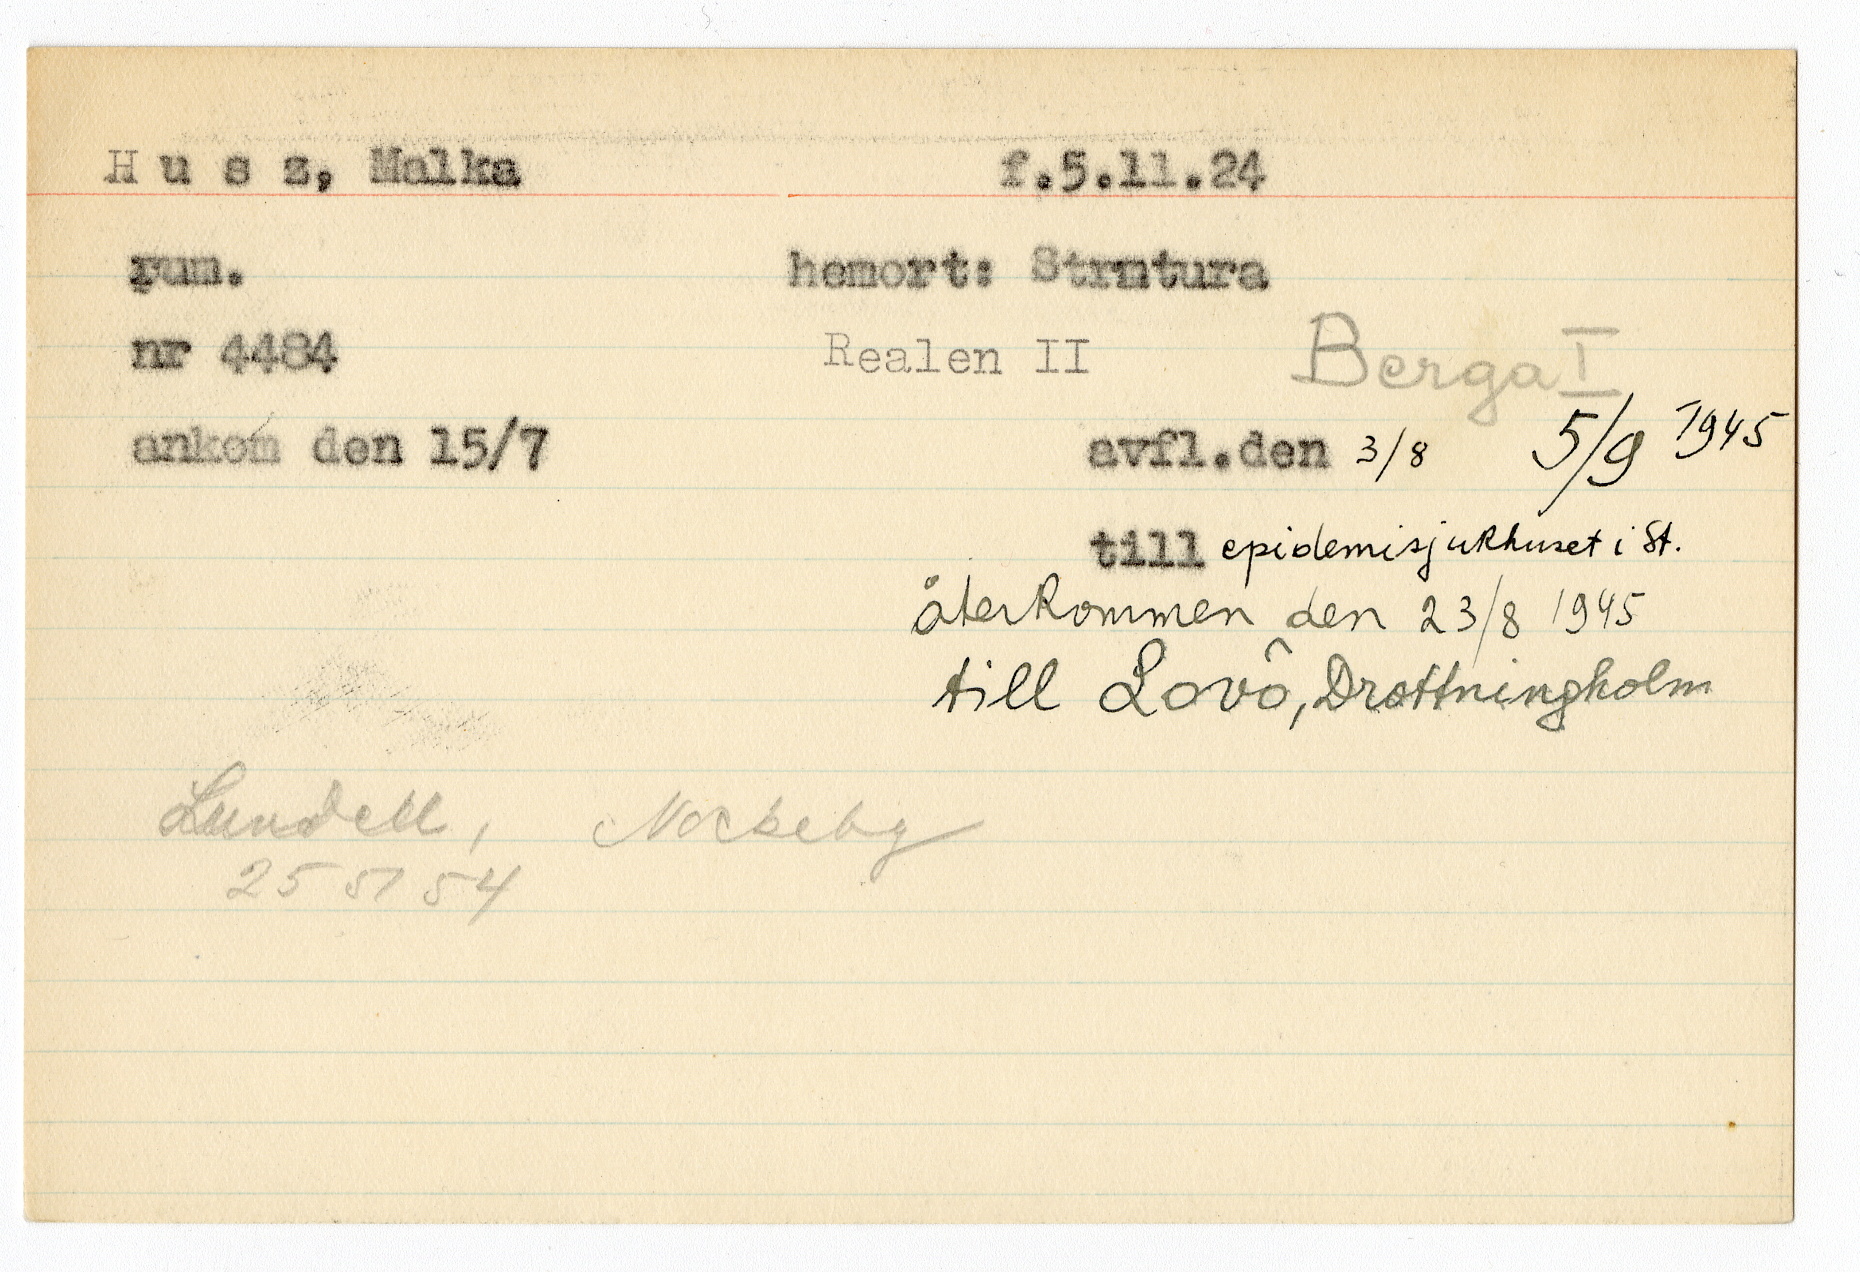 H u s z, Malka f.5.11.24
rum. hemort: Strmtura
nr 4484 Realen II Berga I
ankom den 15/7 avfl.den 3/8 5/9 1945
till epidemisjukhuset i St.
återkommen den 23/8 1945
till Lovö, Drottningholm
Lundell, Nockeby
25 51 54